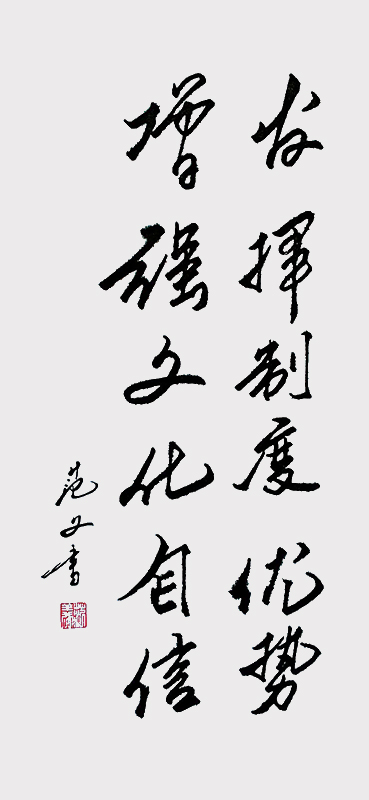 发挥制度优势
增强文化自信
范文书